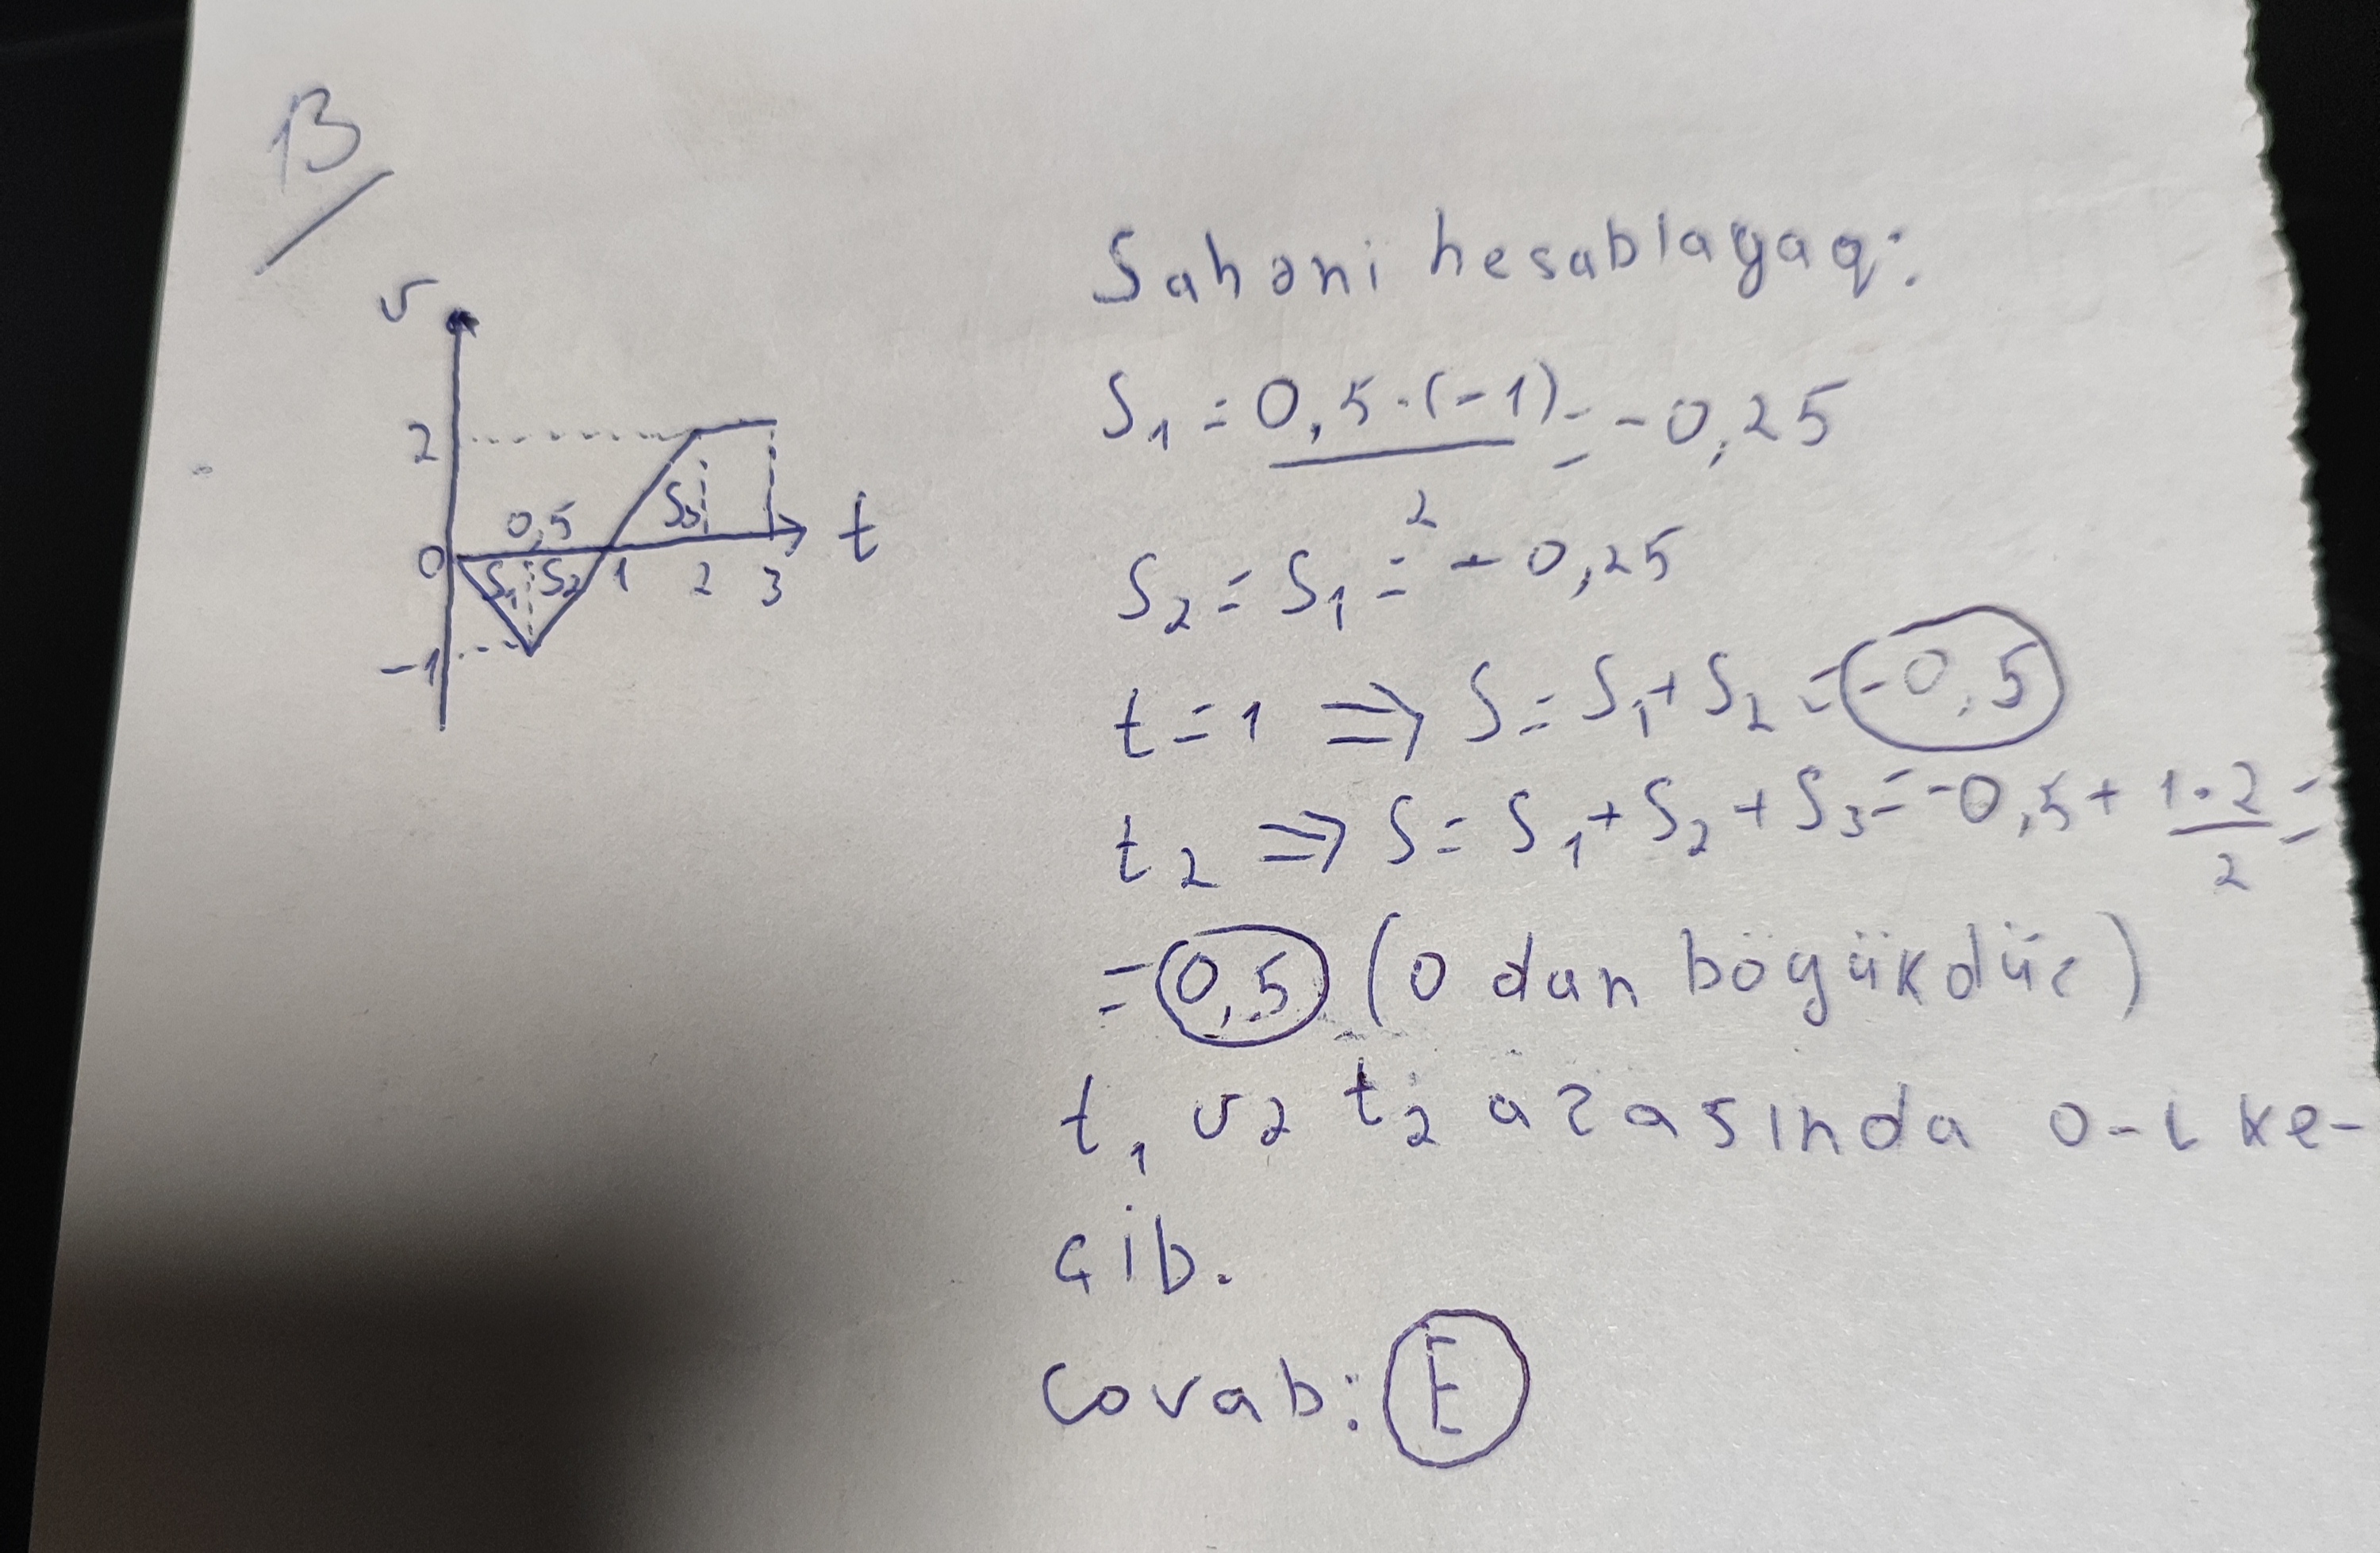 13
v
2
0,5
S3
t
0
S1 S2 1 2 3
-1
Sahəni hesablayaq:
S1 = 0,5·(-1)/2 = -0,25
S2 = S1 = -0,25
t=1 ⇒ S = S1+S2 = -0,5
t2 ⇒ S = S1+S2+S3 = -0,5 + 1·2/2 =
= 0,5 (0 dan böyükdür)
t1 və t2 arasında 0-ı ke-
çib.
Cavab: E